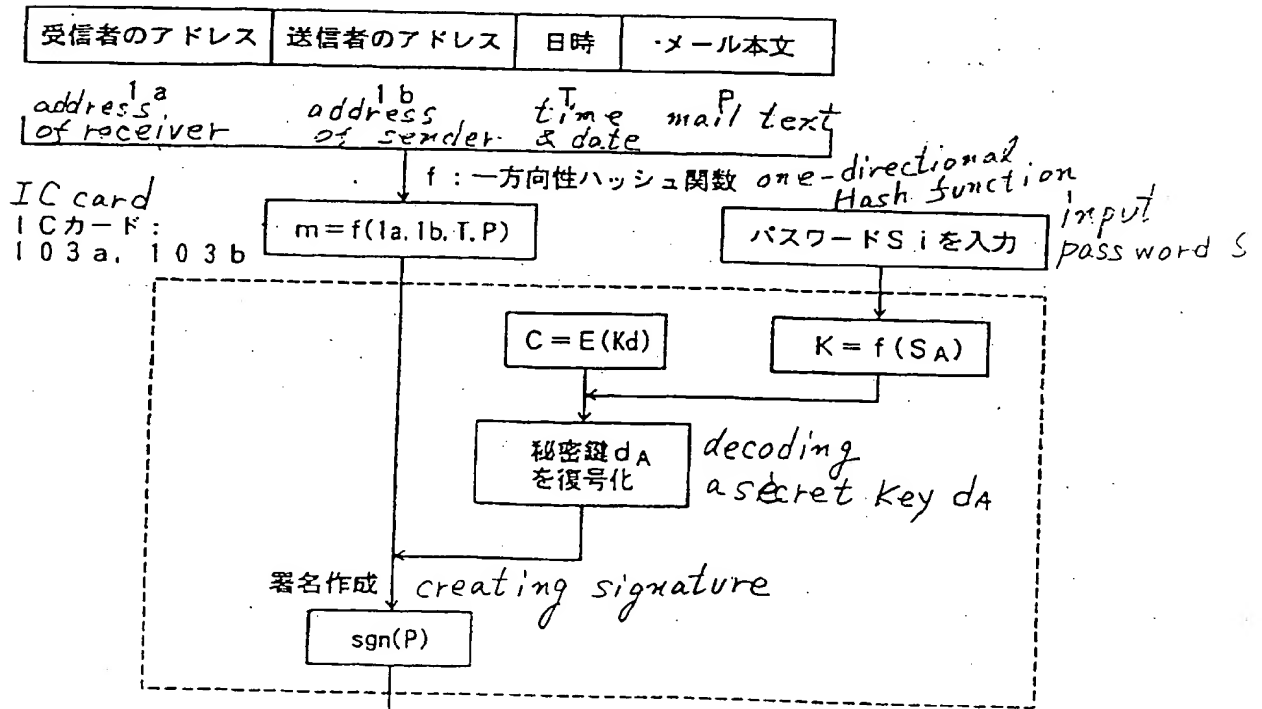 受信者のアドレス 送信者のアドレス 日時 ・メール本文
1a 1b T P
address of receiver
address of sender
time & date
mail text
f：一方向性ハッシュ関数 one-directional
Hash function
IC card
ICカード：
103a，103b
m＝f(1a, 1b, T, P)
パスワードSiを入力
input
password S
C＝E(Kd)
K＝f(SA)
秘密鍵dA
を復号化
decoding
a secret key dA
署名作成 creating signature
sgn(P)